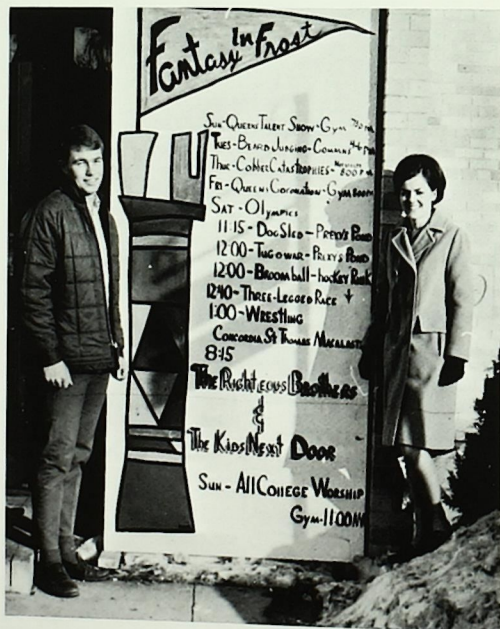 Fantasy in Frost
Sun-Queens Talent Show-Gym
Tues-Beard Judging-Commons
Thur-Cobbee Catastrophies- 8:00 PM
Fri-Queens Coronation-Gym 8:00 PM
Sat-Olympics
11:15-Dog Sled-Prexy's Pond
12:00-Tug o war-Prexy's Pond
12:00-Broom ball-hockey Rink
12:40-Three-Legged Race
1:00-Wrestling
Concordia St Thomas Macalaster
8:15
The Righteous Brothers
&
The Kids Next Door
Sun-All College Worship
Gym-11:00 AM